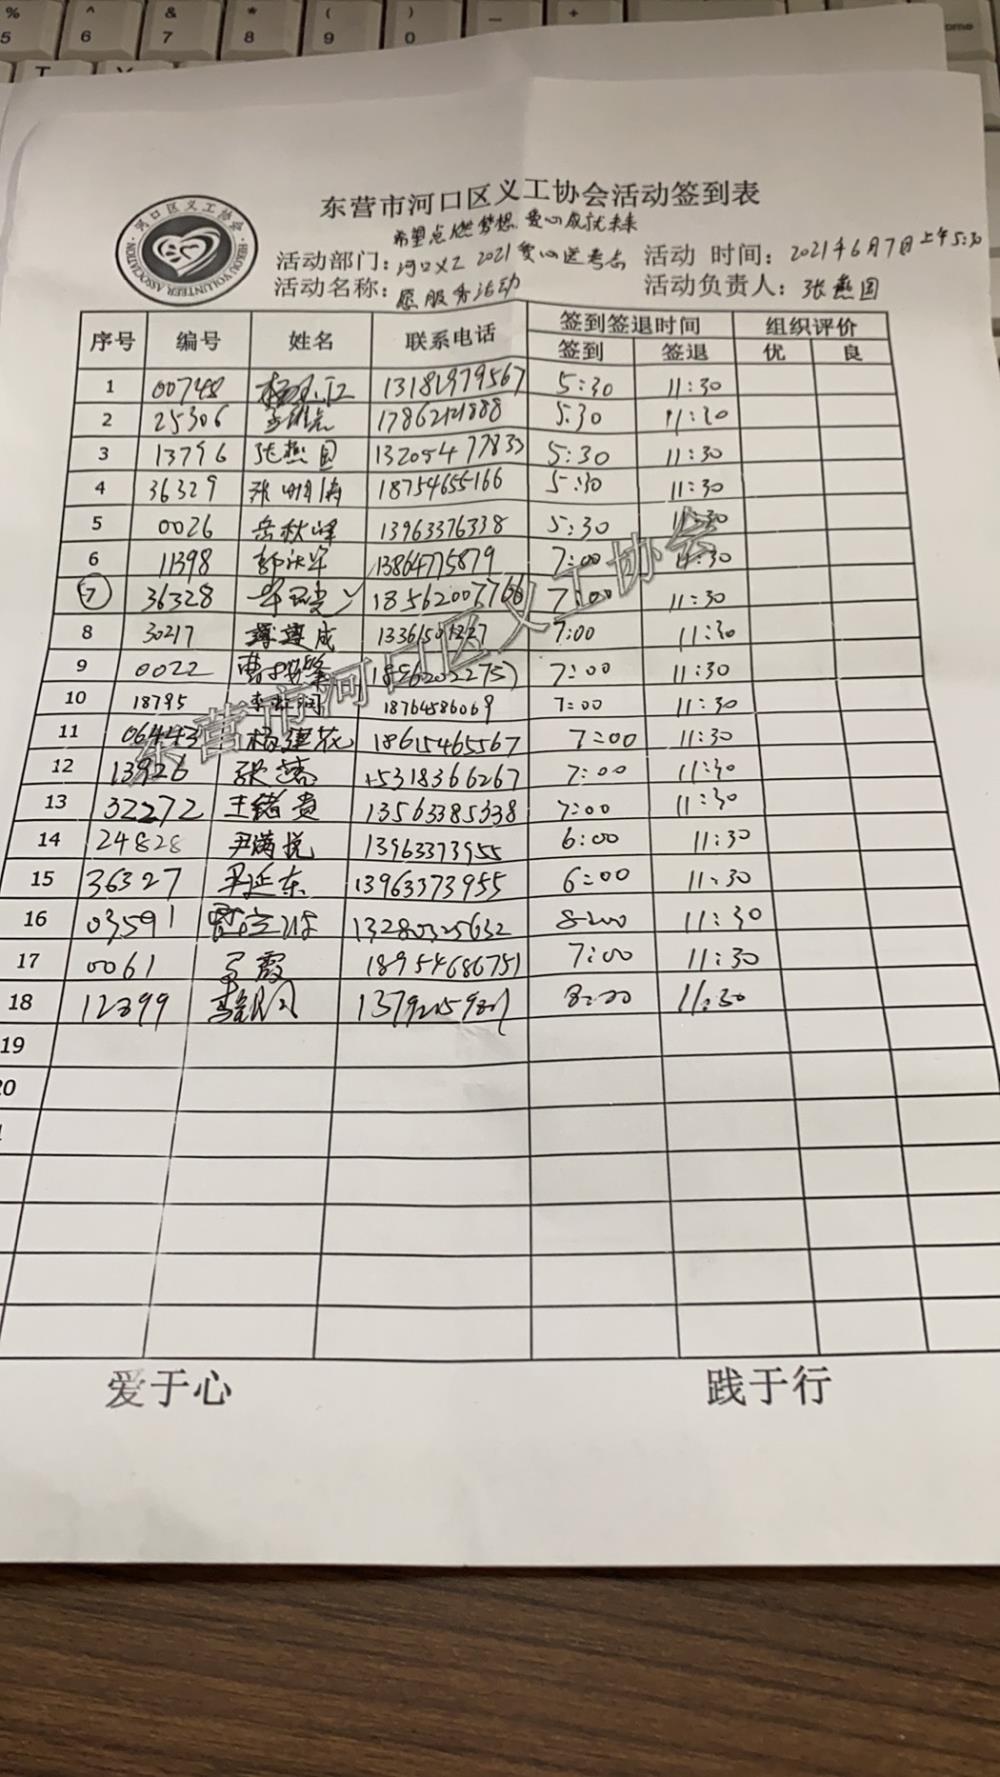 东营市河口区义工协会活动签到表
希望点燃梦想 爱心成就未来
活动部门：河口义工 2021爱心送考志 活动 时间：2021年6月7日上午5:30
活动名称：愿服务活动 活动负责人：张燕国
河口区义工协会
HEKOU VOLUNTEER ASSOCIATION
序号 编号 姓名 联系电话 签到签退时间 组织评价
签到 签退 优 良
1 00748 13181979567 5:30 11:30
2 25306 17862121888 5:30 11:30
3 13796 张燕国 13205477833 5:30 11:30
4 36329 张明涛 18754655166 5:30 11:30
5 0026 岳秋峰 13963376338 5:30 11:30
6 11398 13864775879 7:00 11:30
7 36328 18562007766 7:00 11:30
8 30217 7:00 11:30
9 0022 7:00 11:30
10 18795 18764586069 7:00 11:30
11 06443 杨建花 18615465567 7:00 11:30
12 13926 张蕊 15318366267 7:00 11:30
13 32272 王绪贵 13563385338 7:00 11:30
14 24828 尹满悦 13963373955 6:00 11:30
15 36327 尹延东 13963373955 6:00 11:30
16 03591 13280325632 8:00 11:30
17 0061 18954686751 7:00 11:30
18 12899 8:00 11:30
19
20
东营市河口区义工协会
爱于心 践于行